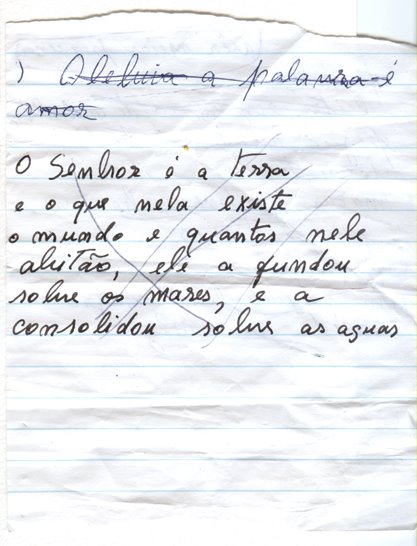 ) Aleluia a palavra é
amor
O Senhor é a terra
e o que nela existe
o mundo e quantos nele
abitão, ele a fundou
solve os mares, e a
consolidou solve as aguas